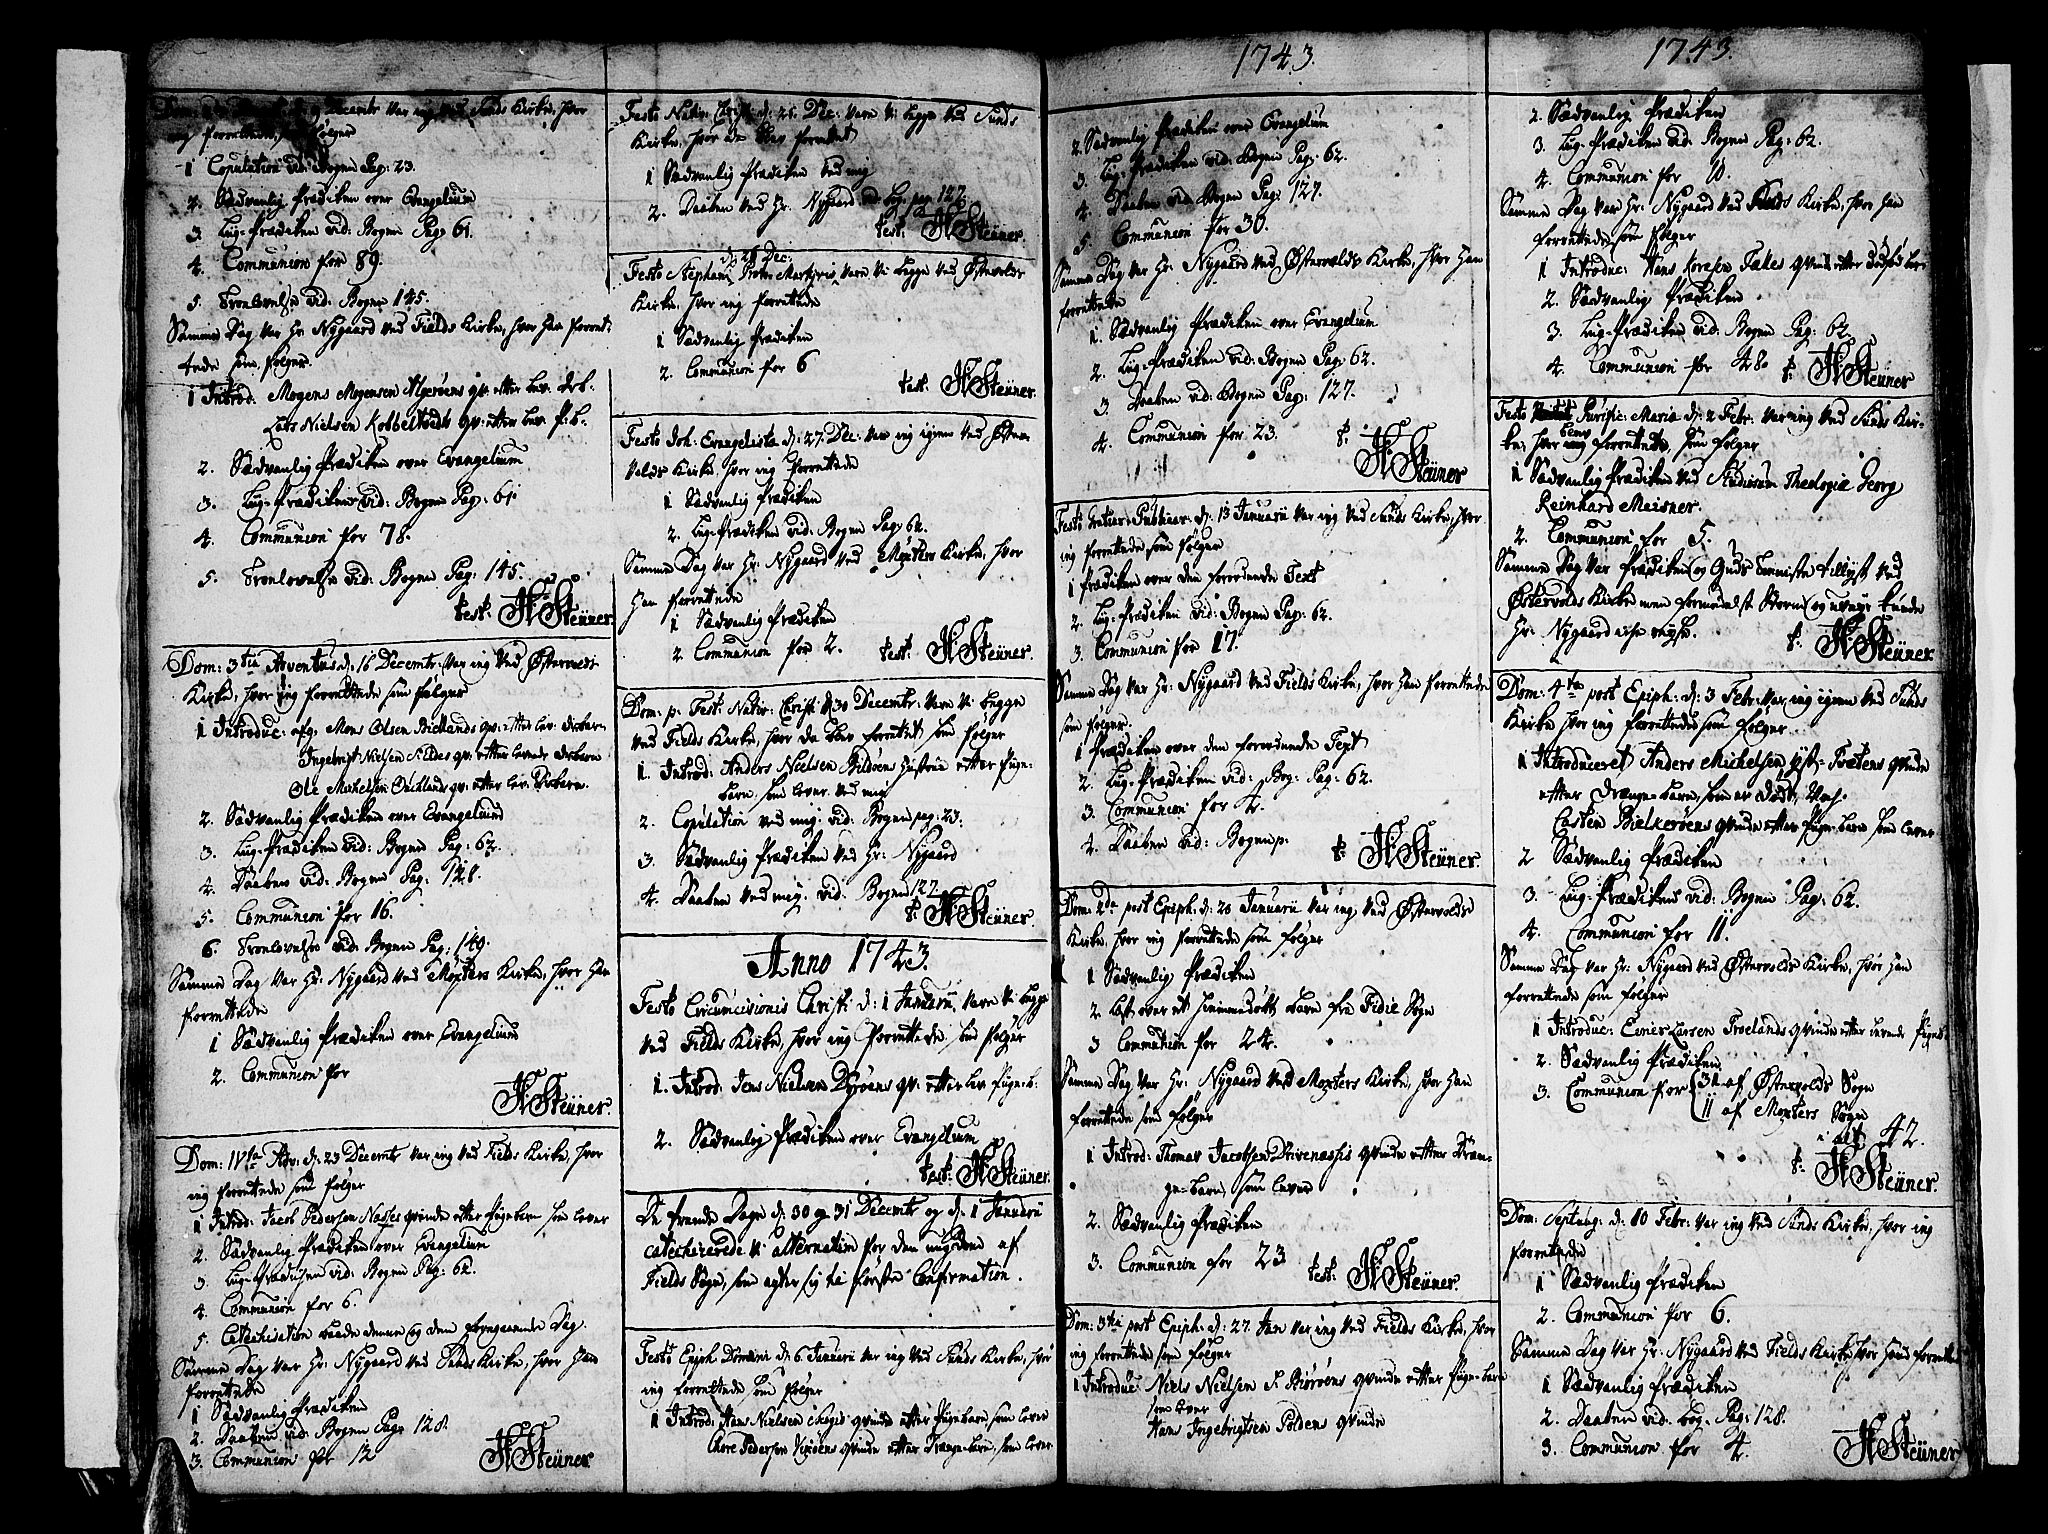 d. 9 Decembr var ieg ved Sunds Kirke, hvor
ieg forrettede som følger
1 Copulation vid: Bogen Pag: 23.
2. Sædvanlig Prædiken over Evangelium
3. Liig-Prædiken vid: Bogen Pag: 61.
4. Communion for 89.
5. Troelovelse vid: Bogen 145.
Samme Dag var Hr: Nygaard ved Fields Kirke, hvor han forret-
tede som følger.
1 Introd. Mogens Mogensen Algerøens qv: etter lev. Drb.
Lars Nielsen Kobbeltvedts qv: etter lev. P: b.
2. Sædvanlig Prædiken over Evangelium
3. Liig-Prædiken vid: Bogen Pag: 61
4. Communion for 78.
5. Troelovelse vid: Bogen Pag: 145.
test: H. Steüner.
Dom: 3tia Adventus d: 16 Decembr: var ieg ved Østervolds
Kirke, hvor ieg forrettede som følger
1 Introduc: Mons Olsen Bielands qv: etter lev. Drbarn
Ingebrigt Nielsen qv: etter levende Drbarn
Ole Michelsen qv: etter lev. Drbarn.
2. Sædvanlig Prædiken over Evangelium
3. Liig-Prædiken vid: Bogen Pag: 62.
4. Daaben vid: Bogen Pag: 128.
5. Communion for 16.
6. Troelovelse vid: Bogen Pag: 149.
Samme Dag var Hr: Nygaard ved Møxters Kirke, hvor han
forrettede
1 Sædvanlig Prædiken over Evangelium
2. Communion for
H. Steüner.
Dom: IVta Adv: d: 23 Decembr var ieg ved Fields Kirke, hvor
ieg forrettede som følger
1 Introd. Jacob Pedersen Nesses qvinde etter Pigebarn som lever
2. Sædvanlig Prædiken over Evangelium
3. Liig-Prædiken vid: Bogen Pag: 62.
4. Communion for 6.
5. Catechisation baade denne og den foregaaende Dag.
Samme Dag var Hr: Nygaard ved Sunds Kirke, hvor han
forrettede
1 Sædvanlig Prædiken
2. Daaben vid: Bogen Pag: 128.
3. Communion for 12
H. Steüner
Festo Nativ: Christi d: 25 Dec: vare vi begge ved Sunds
Kirke, hvor da blev forrettet
1 Sædvanlig Prædiken ved mig
2. Daaben ved Hr. Nygaard vid Bog. pag. 127.
test: H. Steüner.
d. 26 Dec:
Festo Stephani Proto Martyris vare vi begge ved Østervolds
Kirke, hvor ieg forrettede
1 Sædvanlig Prædiken
2. Communion for 6
test: H. Steüner
Festo Joh: Evangelista d: 27 Dec: var ieg igien ved Øster-
volds Kirke hvor ieg forrettede
1 Sædvanlig Prædiken
2. Liig-Prædiken vid: Bogen Pag: 62.
Samme Dag var Hr: Nygaard ved Møxters Kirke, hvor
han forrettede
1 Sædvanlig Prædiken
2 Communion for 2. test: H. Steüner.
Dom. p. Fest. Nativ: Christi d. 30 Decembr: vare vi begge
ved Fields Kirke, hvor da blev forrettet som følger
1. Introd: Anders Nielsen Bildøens Hustrue etter Pige-
barn, som lever ved mig
2. Copulation ved mig. vid. Bogen pag: 23.
3. Sædvanlig Prædiken ved Hr: Nygaard
4. Daaben ved mig. vid. Bogen 127.
t: H. Steüner.
Anno 1743.
Festo Circumcisionis Christi d: 1 Januarii vare vi begge
ved Fields Kirke, hvor ieg forrettede, som følger
1. Introd. Jens Nielsen Dyrøens qv: etter lev Pigeb:
2. Sædvanlig Prædiken over Evangelium
test: H. Steüner.
De trende Dage d. 30 og 31 Decembr og d. 1 Januarii
catechizerede vi alternatim for den ungdom af
Fields Sogn, som agter sig til første Confirmation.
Festo Epiph. Domini d: 6 Januarii var ieg ved Sunds Kirke, hvor
ieg forrettede som følger
1 Introd: Hans Nielsen qvinde etter Pigebarn, som lever
Thore Pedersen Vixøens qvinde etter Drengebarn, som lever
1743.
2. Sædvanlig Prædiken over Evangelium
3. Liig-Prædiken vid: Bogen Pag: 62.
4. Daaben vid: Bogen Pag: 127.
5. Communion for 30.
Samme Dag var Hr: Nygaard ved Østervolds Kirke, hvor han
forrettede
1. Sædvanlig Prædiken over Evangelium
2. Liig-Prædiken vid: Bogen Pag: 62.
3. Daaben vid: Bogen Pag: 127.
4. Communion for 23. t:
H. Steüner
Festo Gratiar: Publicar: d: 13 Januarii var ieg ved Sunds Kirke, hvor
ieg forrettede som følger
1 Prædiken over den forordnede Text
2. Liig-Prædiken vid: Bogen Pag: 62.
3. Communion for 17.
Samme Dag var Hr: Nygaard ved Fields Kirke, hvor han forrettede
som følger.
1 Prædiken over den forordnede Text
2. Liig-Prædiken vid: Bog: Pag: 62.
3. Communion for 4.
4. Daaben vid: Bogen p.
t: H. Steüner
Dom: 2da post Epiph: d: 20 Januarii var ieg ved Østervolds
Kirke, hvor ieg forrettede som følger
1 Sædvanlig Prædiken
2. Kast over et hiemmedøbt barn fra Fidie Sogn
3 Communion for 24.
Samme Dag var Hr: Nygaard ved Møxters Kirke, hvor han
forrettede som følger
1 Introd: Thomas Jacobsen qvinde etter Dren-
ge-barn, som lever
2. Sædvanlig Prædiken
3. Communion for 23 test: H. Steüner.
Dom: 3tia post Epiph: d: 27. Jan var ieg ved Fields Kirke, hvor
ieg forrettede som følger
1 Introduc: Niels Nielsen S. Biørøens qvinde etter Pige-barn
som lever
Hans Ingebrigtsen Poldens qvinde
1743.
2. Sædvanlig Prædiken
3. Liig-Prædiken vid: Bogen Pag: 62.
4. Communion for 10.
Samme Dag var Hr: Nygaard ved Fields Kirke, hvor han
forrettede som følger
1 Introduc: Hans qvinde etter dødfød bar-
2. Sædvanlig Prædiken
3. Liig-Prædiken vid: Bogen Pag: 62
4. Communion for 48. t: H. Steüner
Festo Purific: Maria d: 2 Febr: var ieg ved Sunds Kir-
ke, hvor blev forrettede, som følger
1 Sædvanlig Prædiken ved Studiosum Theologiæ Georg
Reinhard Meisner.
2. Communion for 5.
Samme Dag var Prædiken og Guds Tienneste tillyst ved
Østervolds Kirke men formedelst Storm og uveyr kunde
Hr: Nygaard ikke reyse. t: H. Steüner.
Dom: 4ta post Epiph: d: 3 Febr: var ieg igien ved Sunds
Kirke hvor ieg forrettede som følger
1 Introduceret Anders Michelsen yst-Tvetens qvinde
etter Drenge-barn, som er død,
Casten Bielkerøens qvinde etter Pige-barn som lever
2 Sædvanlig Prædiken
3. Liig-Prædiken vid: Bogen Pag: 62.
4. Communion for 11.
Samme Dag var Hr: Nygaard ved Østervolds Kirke, hvor han
forrettede som følger
1 Introduc: Larsen Troelands qvinde etter levende Pigeb:
2. Sædvanlig Prædiken
3. Communion for 31 af Østervolds Sogn
11 af Møxters Sogn
i alt 42.
t: H. Steüner.
Dom: Septuag: d: 10 Febr: var ieg ved Sunds Kirke, hvor ieg
forrettede
1 Sædvanlig Prædiken
2. Communion for 6.
Samme Dag var Hr: Nygaard ved Fields Kirke hvor hand forrettede
1 Sædvanlig Prædiken
2. Daaben vid. bog. Pag: 128.
3. Communion for 4. H. Steüner